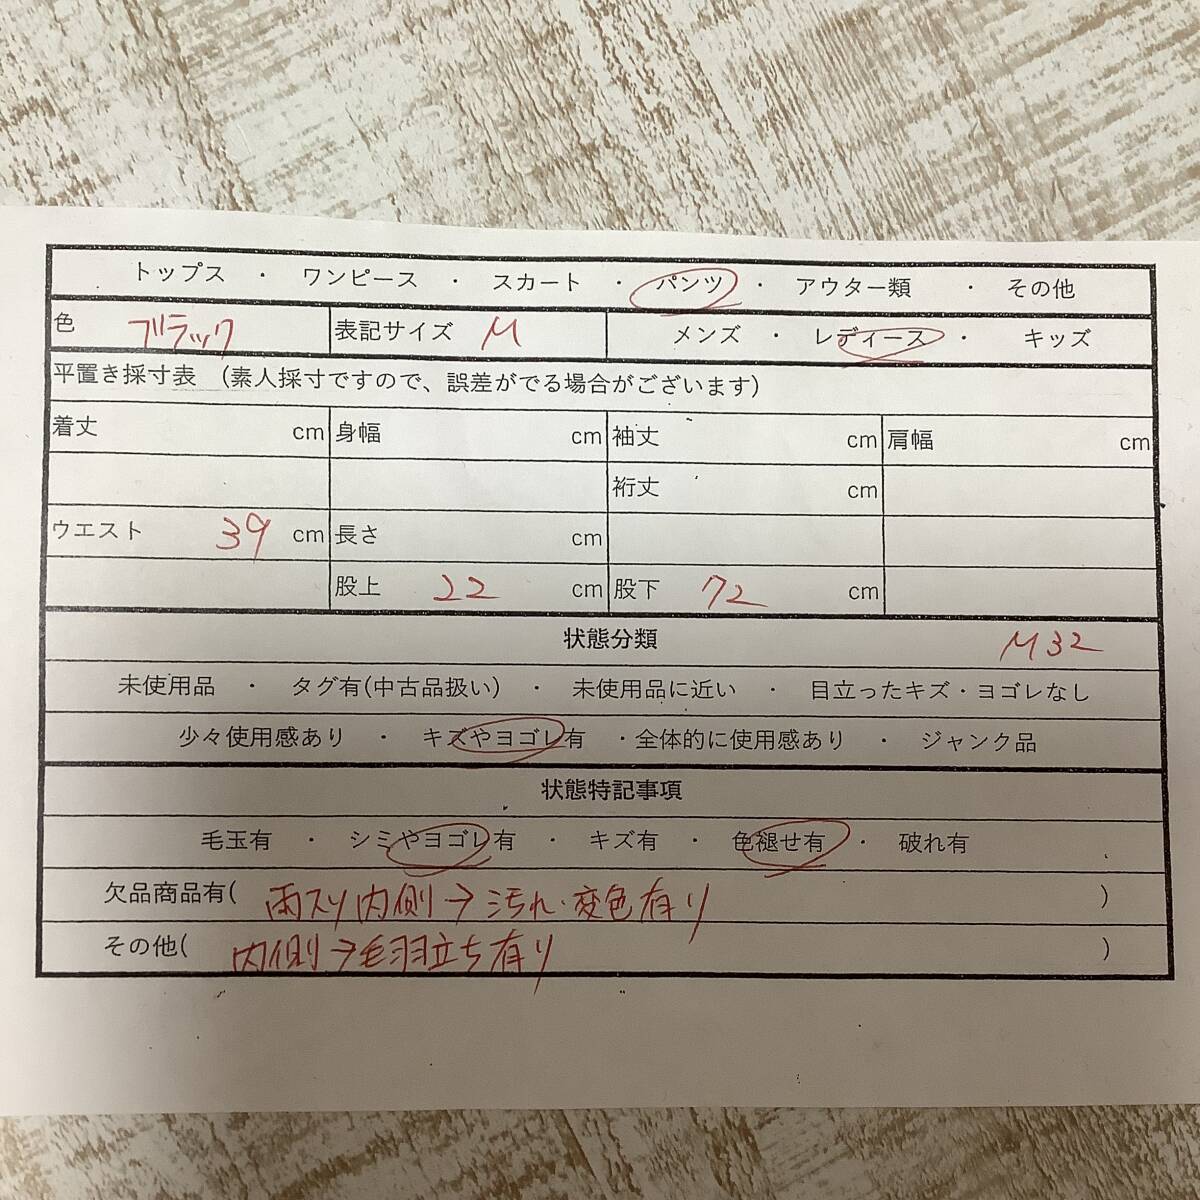 トップス ・ ワンピース ・ スカート ・ パンツ ・ アウター類 ・ その他
色 ブラック 表記サイズ M メンズ ・ レディース ・ キッズ
平置き採寸表 (素人採寸ですので、誤差がでる場合がございます)
着丈 cm 身幅 cm 袖丈 cm 肩幅 cm
裄丈 cm
ウエスト 39 cm 長さ cm
股上 22 cm 股下 72 cm
状態分類 M32
未使用品 ・ タグ有(中古品扱い) ・ 未使用品に近い ・ 目立ったキズ・ヨゴレなし
少々使用感あり ・ キズやヨゴレ有 ・全体的に使用感あり ・ ジャンク品
状態特記事項
毛玉有 ・ シミやヨゴレ有 ・ キズ有 ・ 色褪せ有 ・ 破れ有
欠品商品有( 両スソ内側→汚れ・変色有り )
その他( 内側→毛羽立ち有り )